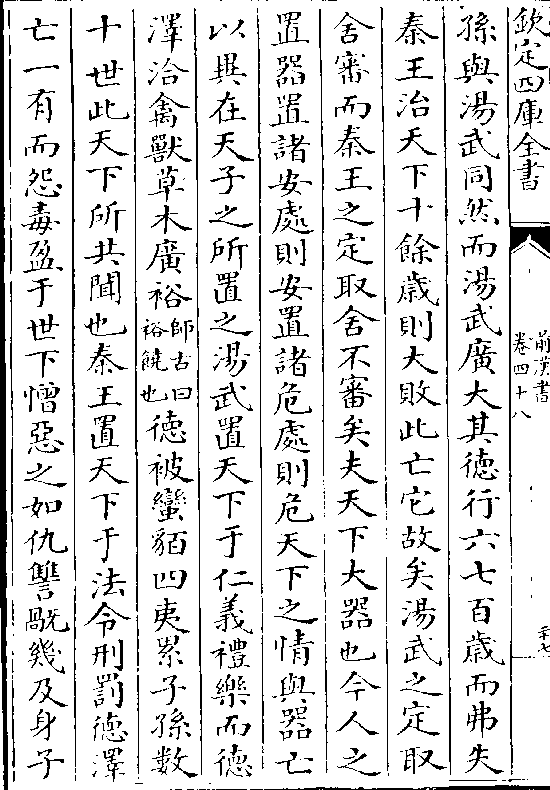 欽定四庫全書
前漢書
卷四十八
二十七
孫與湯武同然而湯武廣大其德行六七百歲而弗失
秦王治天下十餘歲則大敗此亡它故矣湯武之定取
舍審而秦王之定取舍不審矣夫天下大器也今人之
置器置諸安處則安置諸危處則危天下之情與器亡
以異在天子之所置之湯武置天下于仁義禮樂而德
澤洽禽獸草木廣裕師古曰裕饒也德被蠻貊四夷累子孫數
十世此天下所共聞也秦王置天下于法令刑罰德澤
亡一有而怨毒盈于世下憎惡之如仇讐䣛幾及身子